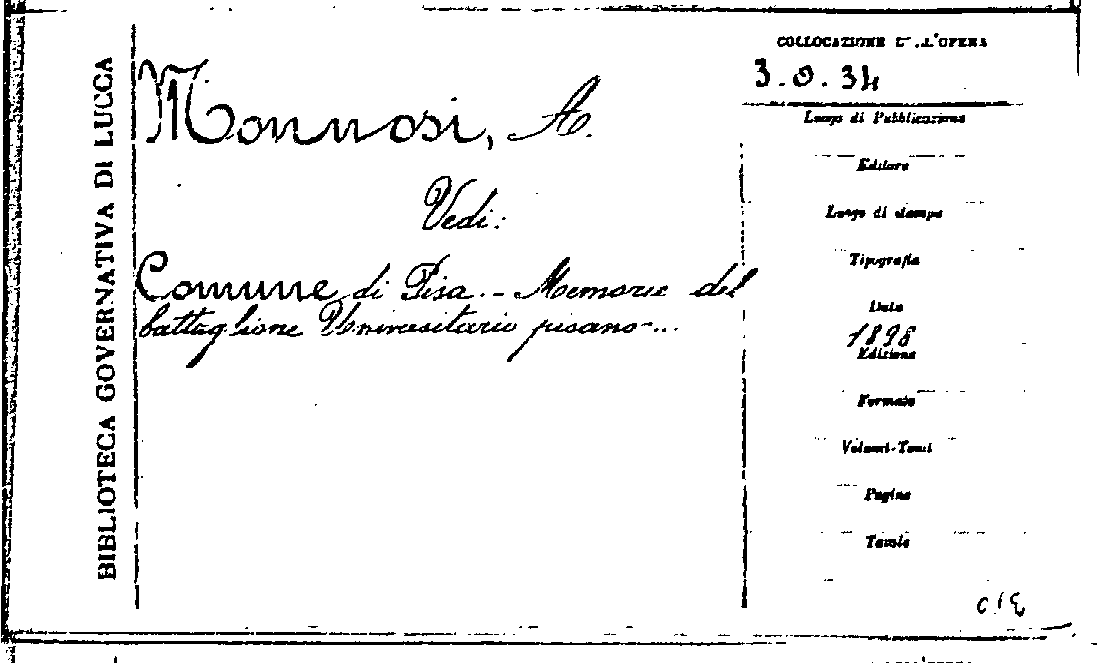 BIBLIOTECA GOVERNATIVA DI LUCCA
Monnosi, A.
Vedi:
Comune di Pisa. - Memorie del
battaglione Universitario pisano-...
COLLOCAZIONE DELL'OPERA
3.0.34
Luogo di Pubblicazione
Editore
Luogo di stampa
Tipografia
Data
1898
Edizione
Formato
Volumi-Tomi
Pagine
Tavole